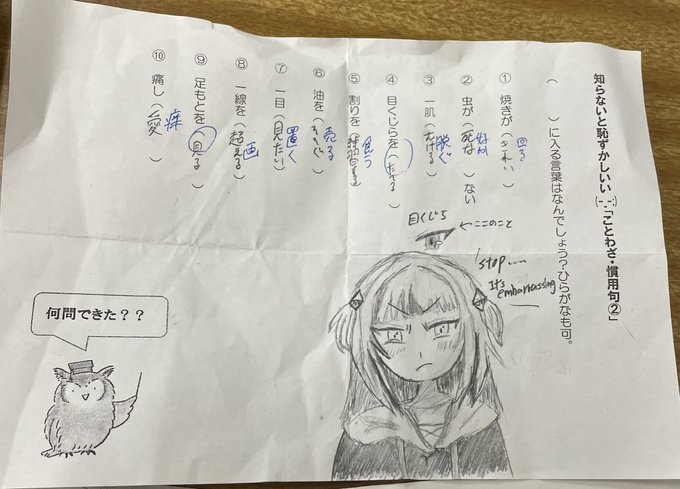 知らないと恥ずかしいい(-_-;)「ことわざ・慣用句②」
（　　）に入る言葉はなんでしょう？ひらがなも可。
① 焼きが（きれい）回る
② 虫が（死な）ない 好か
③ 一肌（むける）脱ぐ
④ 目くじらを（たてる）
⑤ 割りを（ ）食う
⑥ 油を（そそぐ）売る
⑦ 一目（見たい）置く
⑧ 一線を（超える）画
⑨ 足もとを（見る）
⑩ 痛し（愛）痒
目くじら
←ここのこと
stop....
It's
embarrassing
何問できた？？